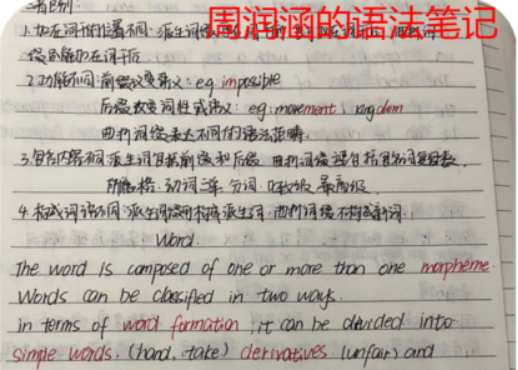 周润涵的语法笔记
二者区别:
1.加在词干的位置不同:派生词缀
缀只能加在词干后
2.功能不同:前缀改变词义:eg.impossible
后缀改变词性或词义:eg:movement、kingdom
曲折词缀表达不同的语法范畴
3.包含内容不同:派生词缀包括前缀和后缀 曲折词缀包括名词复数、
所有格、动词、分词、比较级、最高级.
4.构成词语不同:派生词缀可构成派生词,曲折词缀不构成新词.
Word
The word is composed of one or more than one morpheme.
Words can be classified in two ways.
in terms of word formation, it can be devided into
simple words. (hand, take) derivatives (unfair) and